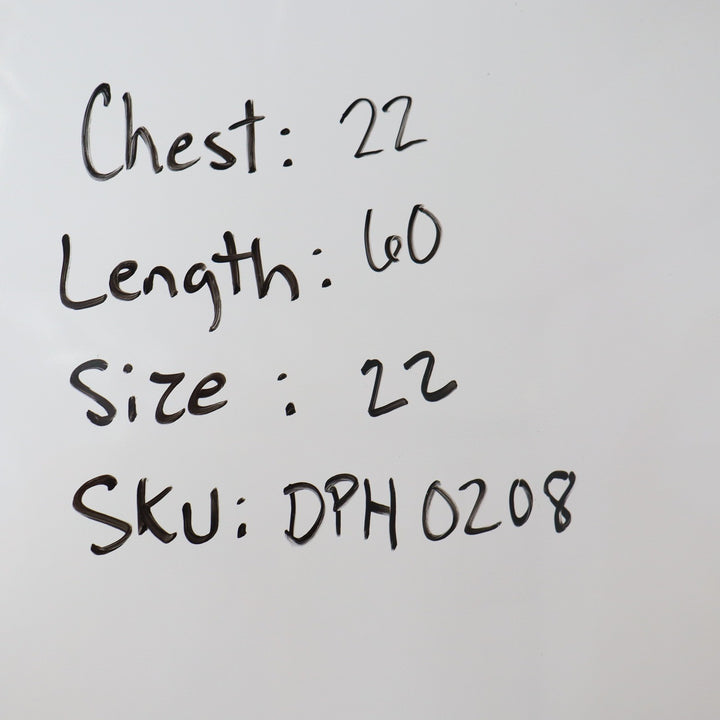 Chest: 22
Length: 60
Size: 22
SKU: DPH0208